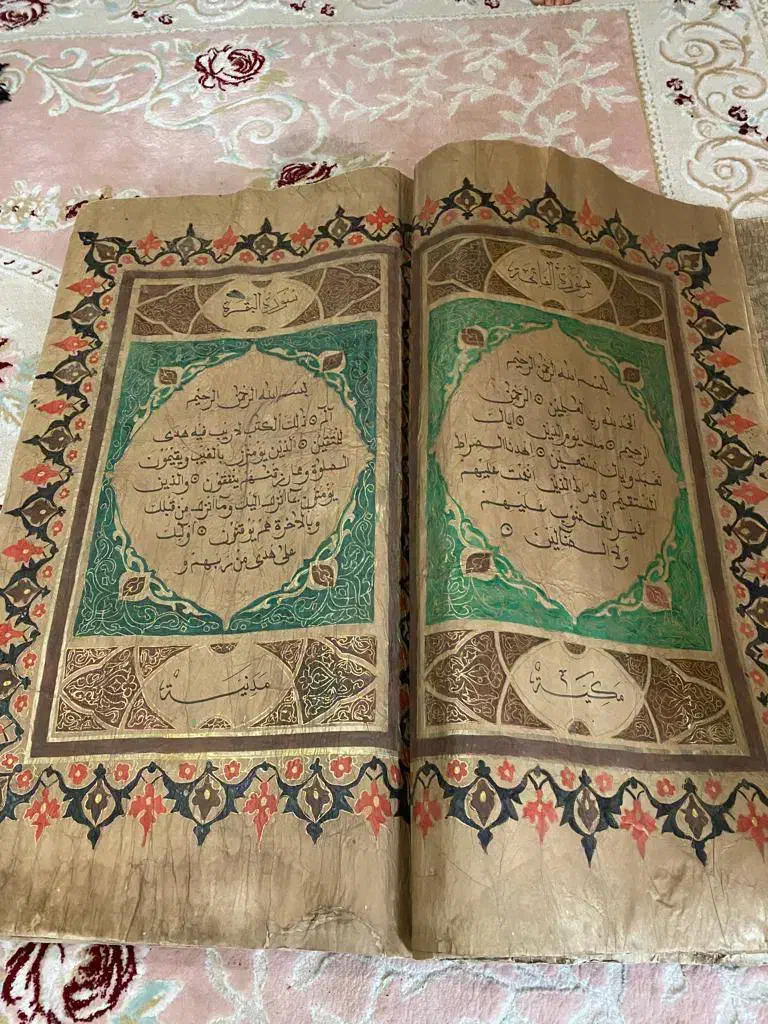 سورة الفاتحة
بسم الله الرحمن الرحيم
الحمد لله رب العلمين الرحمن
الرحيم ملك يوم الدين اياك
نعبد واياك نستعين اهدنا الصراط
المستقيم صراط الذين انعمت عليهم
غير المغضوب عليهم
ولا الضالين
مكية
سورة البقرة
بسم الله الرحمن الرحيم
الم ذلك الكتب لا ريب فيه هدى
للمتقين الذين يؤمنون بالغيب ويقيمون
الصلوة ومما رزقنهم ينفقون والذين
يؤمنون بما انزل اليك وما انزل من قبلك
وبالاخرة هم يوقنون اولئك
على هدى من ربهم و
مدنية